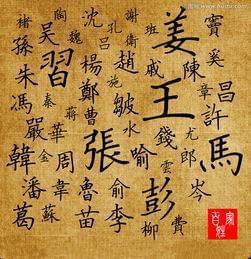 竇
奚
昌
許
馬
章
姜
陳
尤
郎
岑
王
錢
雲
彭
費
班
戚
謝
趙
皺
水
喻
孔
呂
施
沈
楊
鄭
曹
張
魯
苗
俞
李
柳
陶
魏
吳
習
秦
蔣
華
韋
周
蘇
褚
孫
朱
馮
嚴
金
韓
潘
葛
百家姓